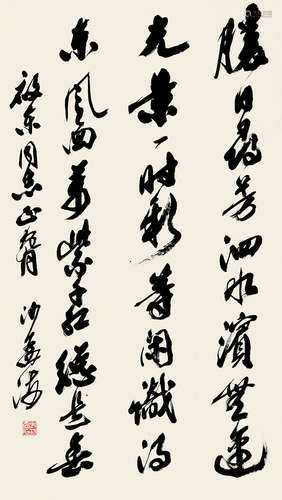 勝日尋芳泗水濱無邊
光景一時新等閑識得
东風面萬紫千紅總是春
东同志正腕 沙孟海